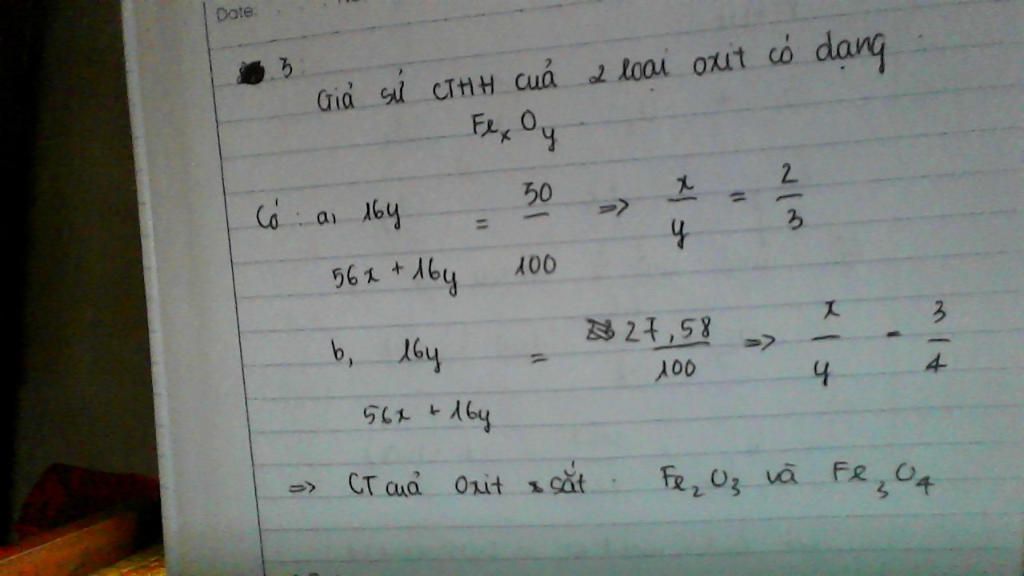 Date:
3
Giả sử CTHH cuả 2 loại oxit có dạng
FexOy
Có : a, 16y / 56x + 16y = 30 / 100 => x / y = 2 / 3
b, 16y / 56x + 16y = 27,58 / 100 => x / y = 3 / 4
=> CT cuả oxit sắt : Fe2O3 và Fe3O4